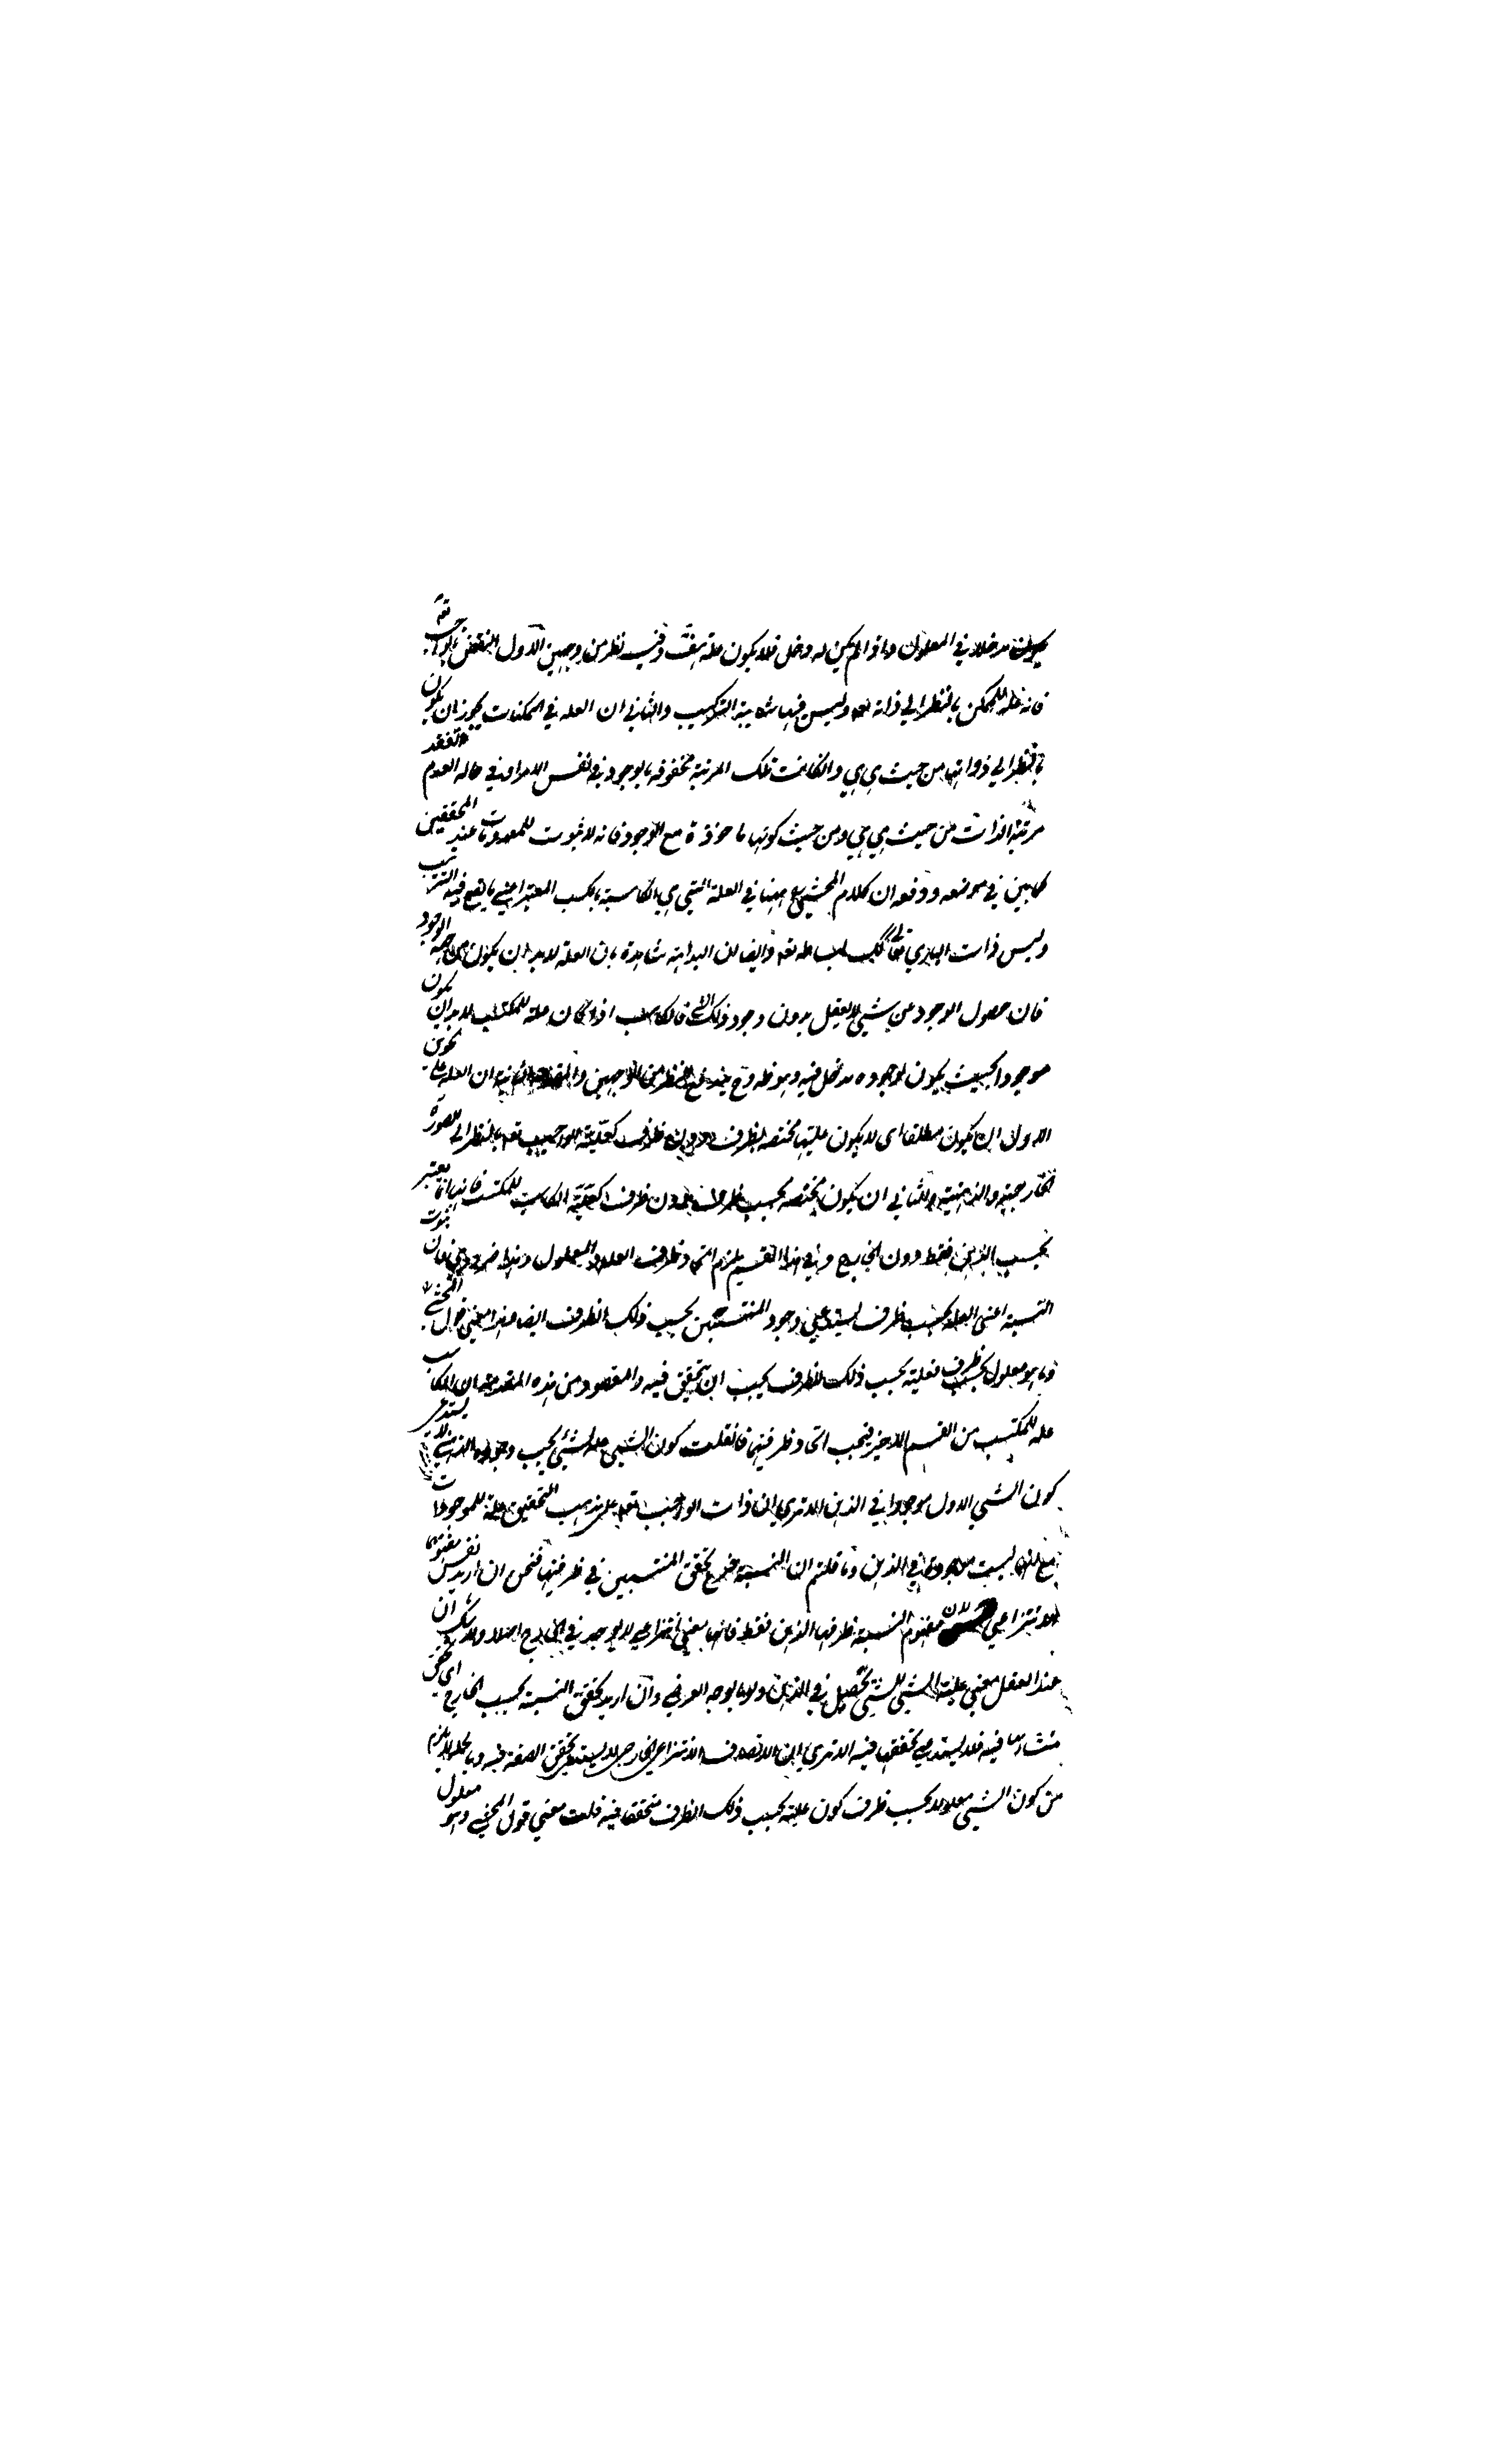 يكون مدخلا في المعلول واذا لم يكن له دخل فلا يكون علة هف وفيه نظر من وجهين الاول النقض بالواجب تعه
فانه علة للممكن بالنظر الى ذاته تعه وليس فيها شائبة التركيب والثاني ان العلة في الممكنات يجوز ان يكون
بالنظر الى ذواتها من حيث هي هي وان كانت تلك المرتبة محفوفة بالوجود في نفس الامر اذ في حالة العدم تفقد
مرتبة الذات من حيث هي هي ومن حيث كونها ماخوذة مع الوجود فانه لا ثبوت للمعدومات عند المحققين
كما بين في موضعه ودفعه ان كلام المحشي ههنا في العلة التي هي الكاسبة بالكسب المعتبر اعني ما يقع فيه الترتيب
وليس ذات الباري تعالى كك لبساطته تعه وايضا ان البداهة شاهدة بان العلة لابد ان يكون من جهة الوجود
فان حصول الوجود عن شيء لا يعقل بدون وجود ذلك الشيء فالكاسب اذا كان علة للمكتسب لابد ان يكون
موجودا بحيث يكون لوجوده مدخل فيه وهو ظه وح يندفع النظر من الوجهين والمقدمة الثانية ان العلة على نحوين
الاول ان يكون مطلقا اى لا يكون عليتها مختصة بظرف دون ظرف كعلية الواجب تعه بالنظر الى الصورة
الخارجية والذهنية والثاني ان يكون مختصة بحسب ظرف دون ظرف كعلية الكاسب للمكتسب فانها انما يعتبر
بحسب الذهن فقط دون الخارج وفي هذا القسم يلزم اتحاد ظرف العلة والمعلول وهذا ضروري فان ثبوت
النسبة اعنى العلة بحسب ظرف يستدعي وجود المنتسبين بحسب ذلك الظرف ايضا هذا معنى قول المحشي
وما هو معلول بحسب ظرف فعليته بحسب ذلك الظرف يجب ان يتحقق فيه والمقصود من هذه المقدمة ان الكاسب
علة للمكتسب من القسم الاخير فيجب اتحاد ظرفيهما فان قلت كون الشيء علة لشيء بحسب وجوده الذهني لا يستدعى
كون الشيء الاول موجودا في الذهن الا ترى ان ذات الواجب تعه على مذهب التحقيق علة للموجودات
مع انها ليست موجودة في الذهن وما قلتم ان النسبة فرع تحقق المنتسبين في ظرفيهما فنحن ان اريد نفس مفهومها
الانتزاعي لان مفهوم النسبة ظرفها الذهن فقط فانها معنى انتزاعي لا يوجد في الخارج اصلا ولا شك ان
عند العقل معنى علية الشيء للشيء يحصل في الذهن ولو بالوجه العرضي وان اريد تحقق النسبة بحسب الخارج اى تحقق
منشاءها فيه فلا يستدعي تحققها فيه الا ترى ان الاتصاف الانتزاعي الخارجي لا يستدعي تحقق الصفة فيه وبالجملة لا يلزم
من كون الشيء معلولا بحسب ظرف كون علته بحسب ذلك الظرف متحققا فيه قلت معنى قول المحشي وهو معلول